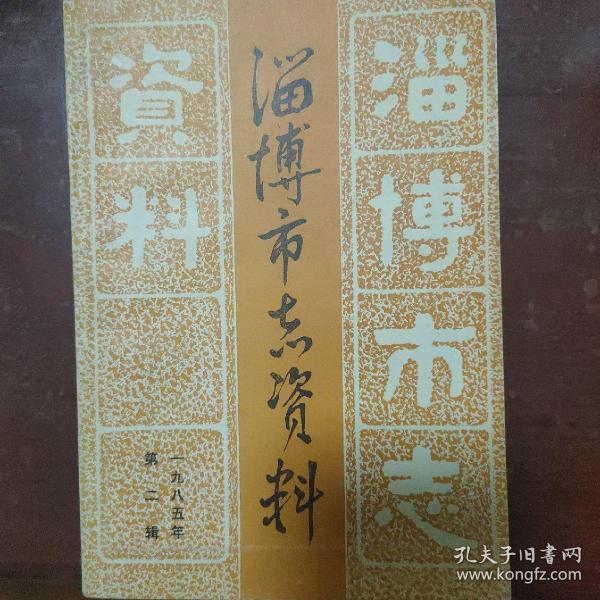 淄博市志
資料
淄博市志資料
一九八五年
第二辑
孔夫子旧書网
www.kongfz.com